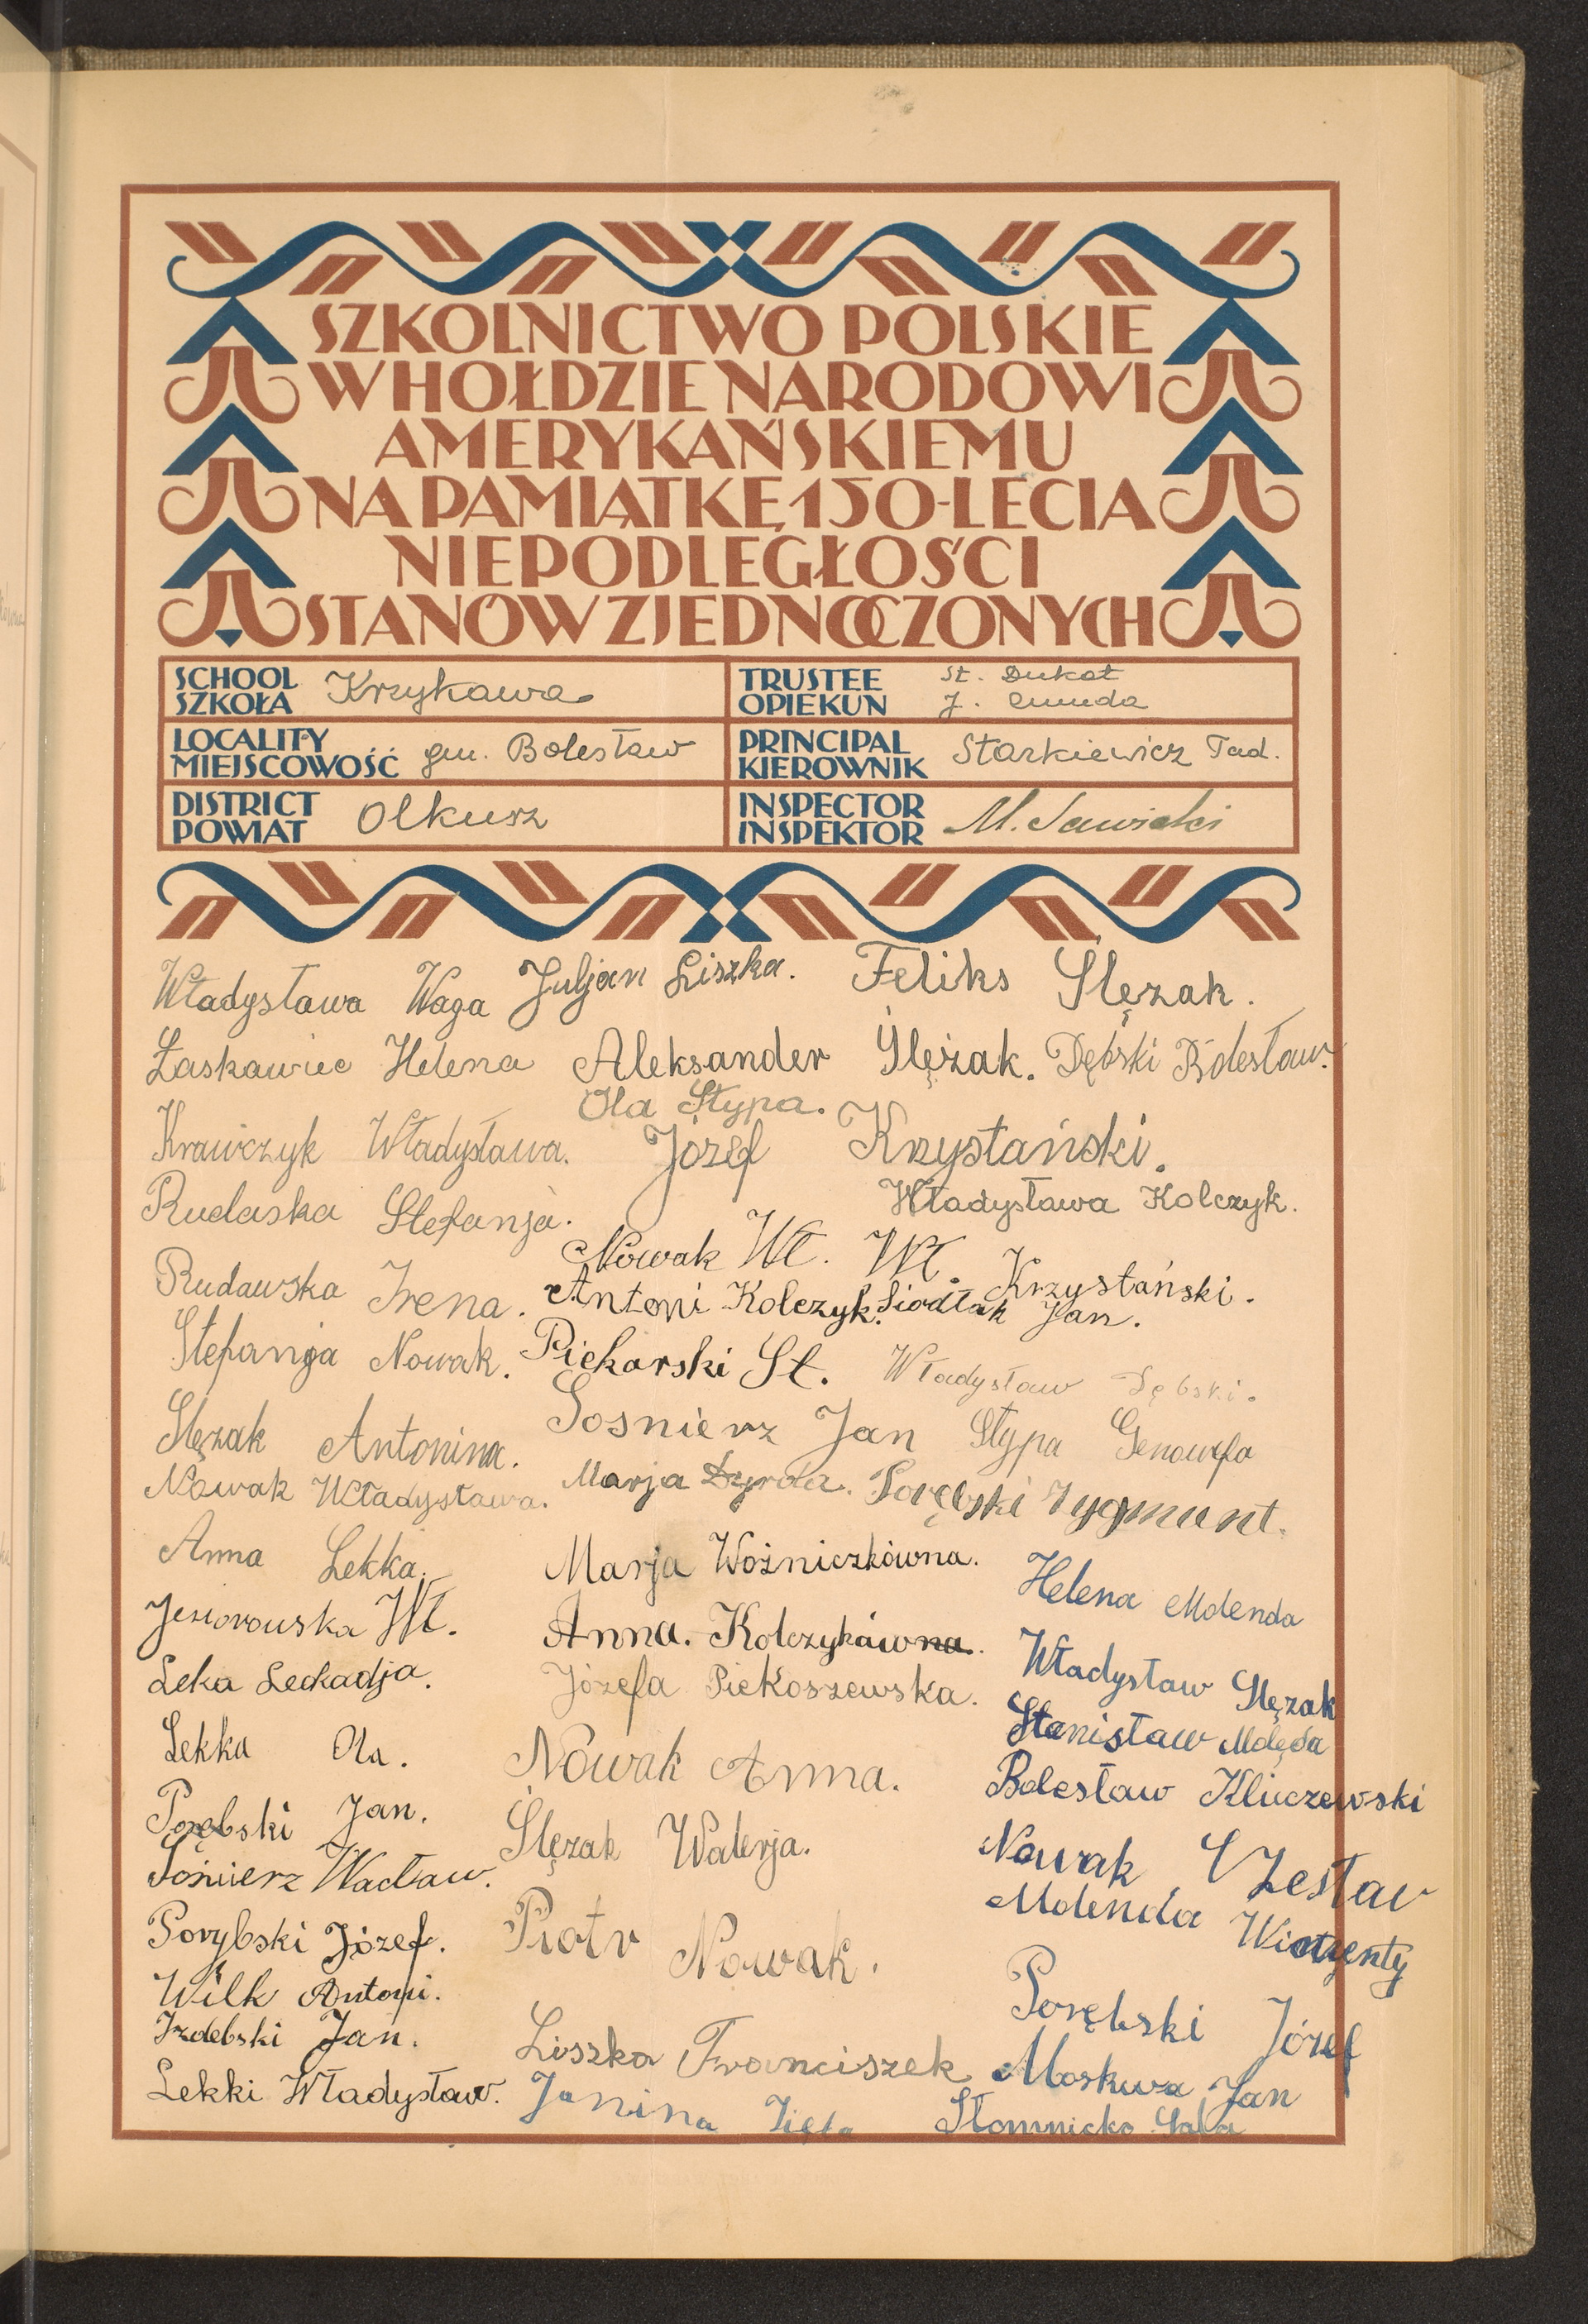 SZKOLNICTWO POLSKIE
W HOŁDZIE NARODOWI
AMERYKAŃSKIEMU
NA PAMIĄTKĘ 150-LECIA
NIEPODLEGŁOŚCI
STANÓW ZJEDNOCZONYCH
SCHOOL
SZKOŁA
Krzykawa
TRUSTEE
OPIEKUN
St. Dukat
J.
LOCALITY
MIEJSCOWOŚĆ
gm. Bolesław
PRINCIPAL
KIEROWNIK
Starkiewicz Tad.
DISTRICT
POWIAT
Olkusz
INSPECTOR
INSPEKTOR
M. Sawicki
Władysława Waga Juljan Liszka. Feliks Ślęzak.
Łaskawiec Helena Aleksander Ślęzak. Dębski Bolesław.
Ola Stypa.
Krawczyk Władysława. Józef Krzystański.
Rudaska Stefanja. Władysława Kolczyk.
Nowak Wł. Wł. Krzystański.
Rudawska Irena. Antoni Kolczyk. Siodłak Jan.
Stefanja Nowak. Piekarski St. Władysław Dębski.
Ślęzak Antonina. Sosnierz Jan Stypa Genowefa
Nowak Władysława. Marja Porębski Zygmunt.
Anna Lekka. Marja Woźniczkówna. Helena Molenda
Jeziorowska Wł. Anna. Kolczykówna. Władysław Ślęzak
Leka Leokadja. Józefa Piekoszewska. Stanisław Molęda
Lekka Ola. Nowak Anna. Bolesław Kluczewski
Porębski Jan. Ślęzak Walerja. Nowak Czesław
Sośnierz Wacław. Molenda Wincenty
Porybski Józef. Piotr Nowak. Porębski Józef
Wilk Antoni.
Izdebski Jan. Liszka Franciszek Moskwa Jan
Lekki Władysław. Janina Zięta Słomnicka